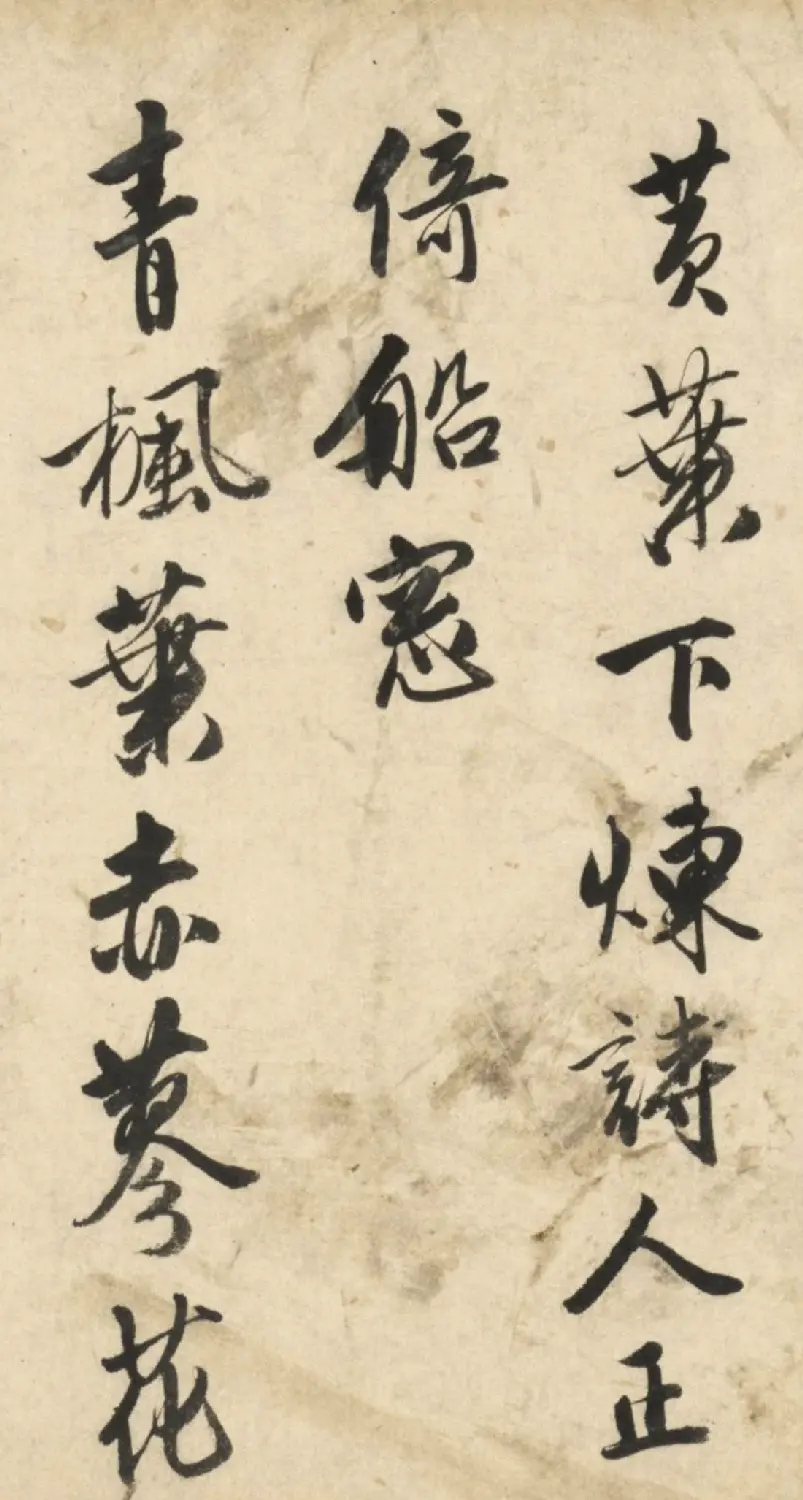 黄葉下煉詩人正
倚船窓
青楓葉赤蓼花